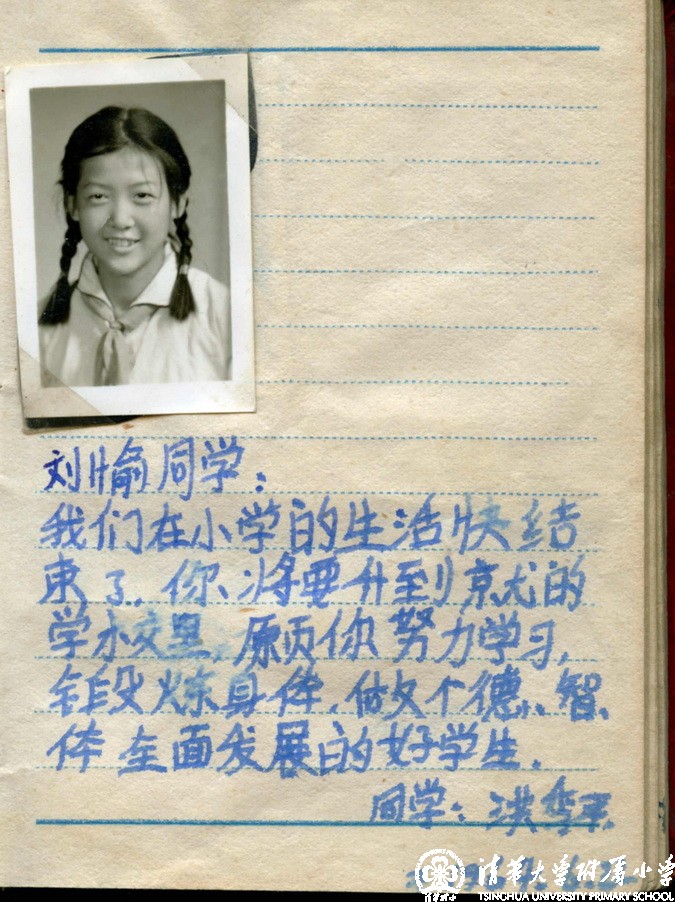 刘愉同学：
我们在小学的生活快结
束了。你将要升到京尤的
学校里，愿你努力学习，
锻炼身体，做个德、智、
体全面发展的好学生。
同学：洪
清华大学附属小学
TSINGHUA UNIVERSITY PRIMARY SCHOOL